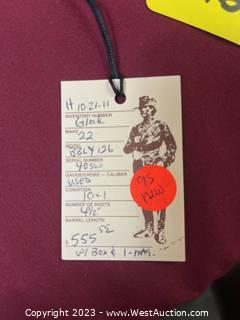 H 10-21-11
INVENTORY NUMBER
Glock
MAKE
22
MODEL
BBLY126
SERIAL NUMBER
40SW
GAUGE/CHOKE — CALIBER
USED
CONDITION
10+1
NUMBER OF SHOTS
4½"
BARREL LENGTH
$ 555
W/ Box & 1-mag.
95
NEW
Copyright 2023 - WestAuction.com